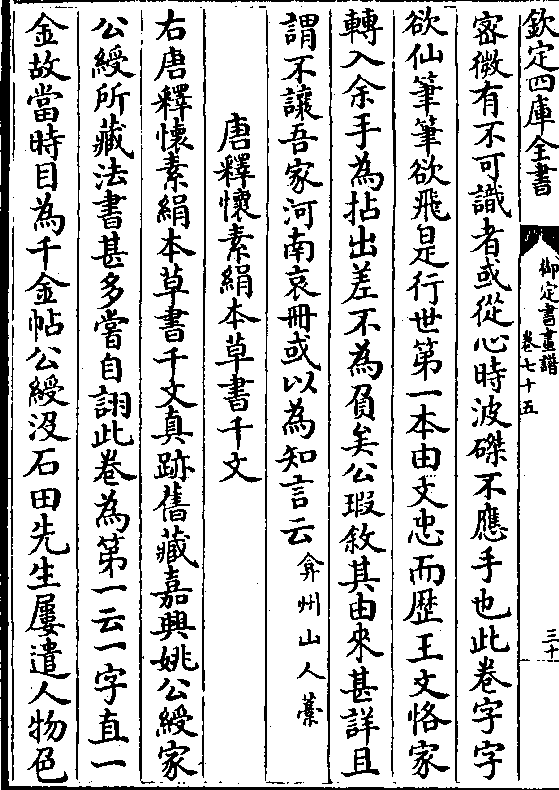 欽定四庫全書
御定書畫譜
卷七十五
三十
密微有不可識者或從心時波磔不應手也此卷字字
欲仙筆筆欲飛是行世第一本由文忠而歴王文恪家
轉入余手為拈出差不為負矣公瑕敘其由來甚詳且
謂不讓吾家河南哀冊或以為知言云弇州山人藁
唐釋懷素絹本草書千文
右唐釋懷素絹本草書千文真跡舊藏嘉興姚公綬家
公綬所藏法書甚多嘗自詡此卷為第一云一字直一
金故當時目為千金帖公綬沒石田先生屢遣人物色